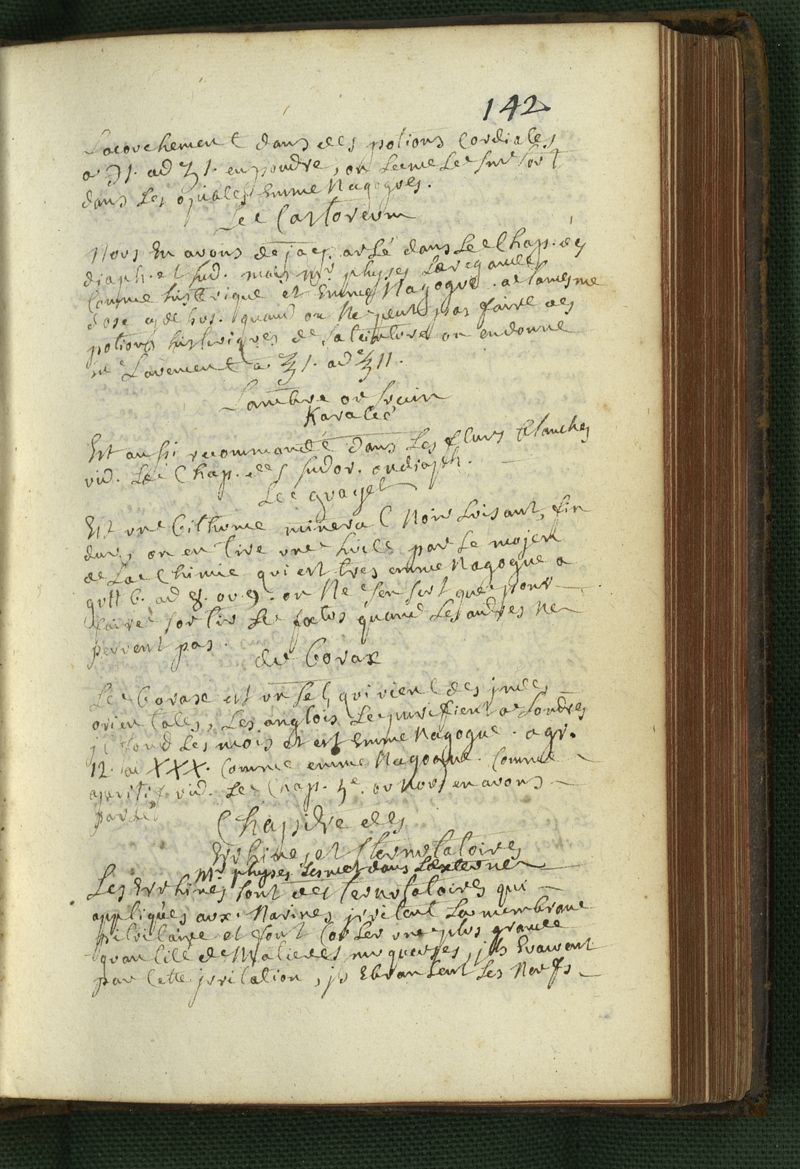 142
Lacouchement dans des potions Cordiales
a ℈1. ad ʒ1. en poudre, on Lemele Sur tout
dans Les opiates EmmeNagogues.
Le Castoreum
Nous En avons deja parlé dans Le Chap. des
diaph. et Sud. mais Mr. physes Le regarde
Comme histerique et EmmeNagogue. a la mesme
dose que dessus. quand on Ne peut pas faire des
potions histeriques de sa teinture on en donne
en Lavement a ʒ1. ad ʒ11.
Lambre ou Succin
Karabé
Est aussi recommandé dans Les fleurs blanches
vid. Le Chap. des Sudor. ou diaph.
Le gyaget
Est une bithume mineral Noir Luisant, fin
dur, on en tire une huile par Le mojen
de La Chimie qui est tres emmeNagogue a
gutt 6. ad 8. ou 9. on Ne s'en sert que pour
faire Sortir Le foetus quand Les autres Ne
peuvent pas.
du borax
Le borax est un Sel qui vient des jndes
orientales, Les anglois Le purifient a Londres
il fond Les mois et est EmmeNagogue. a gr.
12. a XXX. Comme emmeNagogue. Comme
aperitif vid. Le Chap. 5e. ou Nous en avons
parlé
Chapitre des
Errhines et Sternutatoires
Mr physes Les met dans Lexterne
Les Errhines sont des Sternutatoires qui
appliqués aux Narines jrritent La membrane
pituitaire et font Couler une plus grande
quantité de Matieres muqueuses, jls Evacuent
par Cette jrritation, jls Ebranlent Les Nerfs